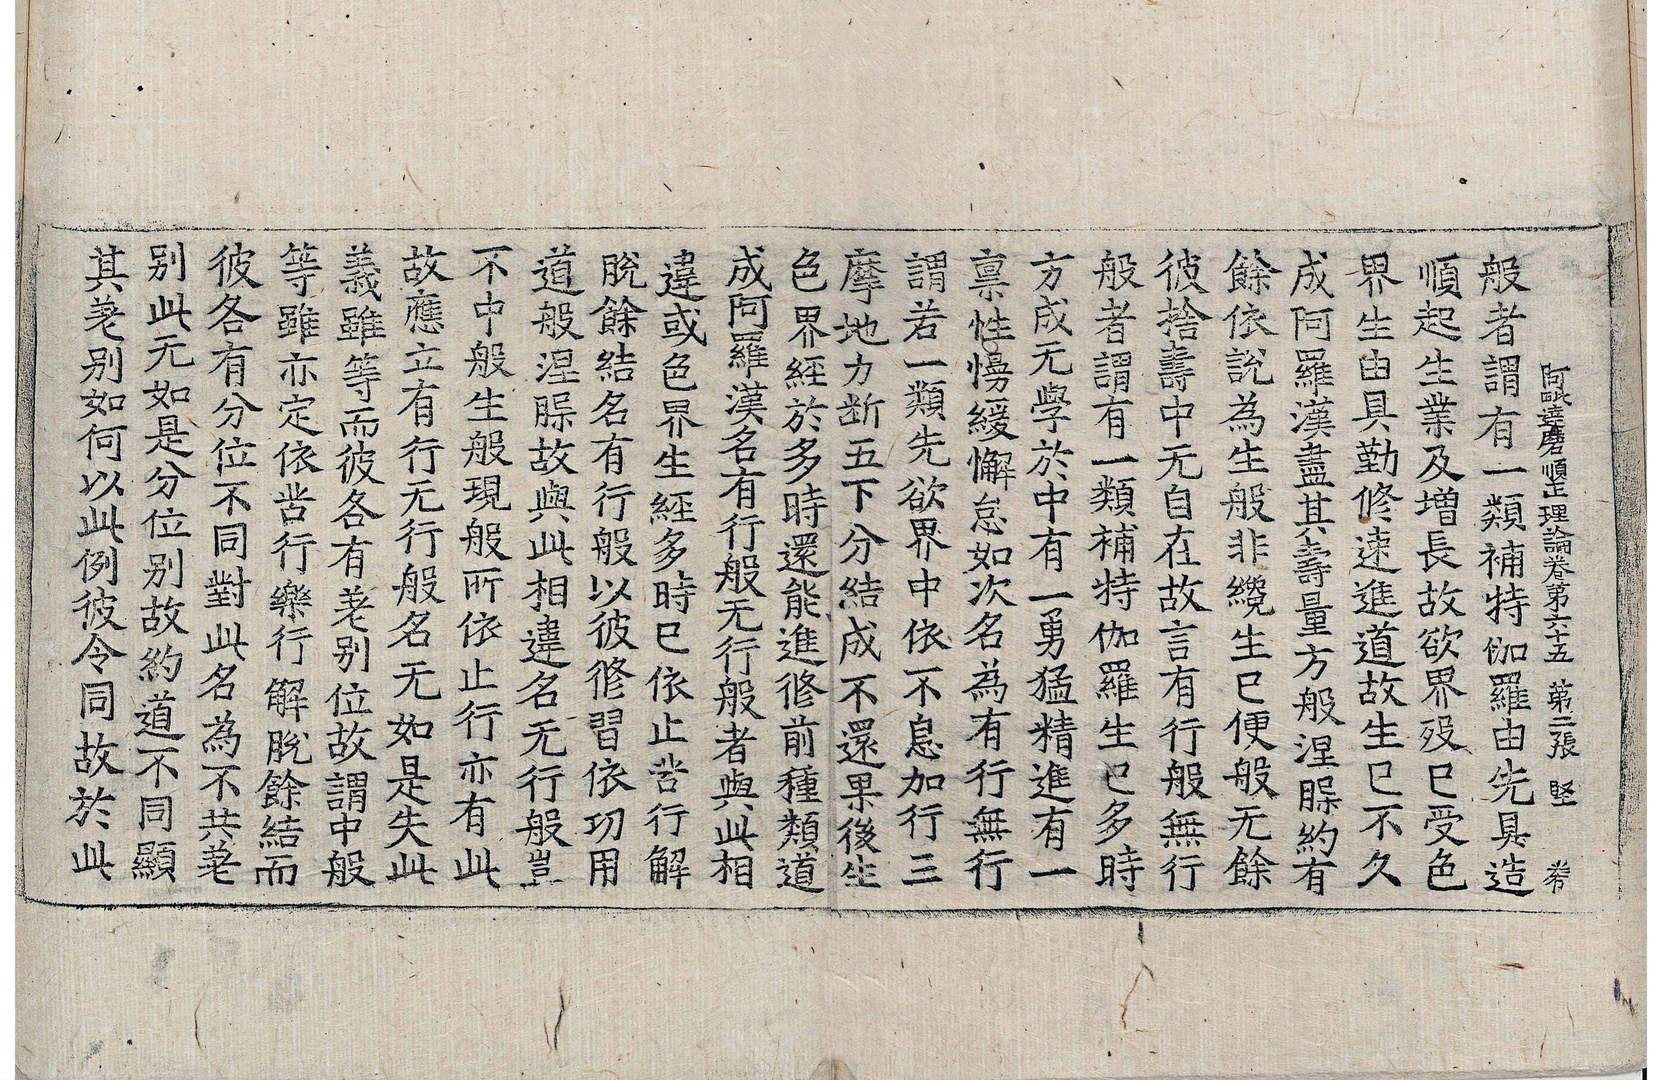 阿毗達磨順正理論卷第六十五 第二張 堅
般者謂有一類補特伽羅由先具造
順起生業及増長故欲界歿已受色
界生由具勤修速進道故生已不久
成阿羅漢盡其壽量方般涅槃約有
餘依說為生般非纔生已便般无餘
彼捨壽中无自在故言有行般無行
般者謂有一類補特伽羅生已多時
方成无學於中有一勇猛精進有一
禀性慢緩懈怠如次名為有行無行
謂若一類先欲界中依不息加行三
摩地力断五下分結成不還果後生
色界經於多時還能進修前種類道
成阿羅漢名有行般无行般者與此相
違或色界生經多時已依止苦行解
脫餘結名有行般以彼修習依功用
道般涅槃故與此相違名无行般豈
不中般生般現般所依止行亦有此
故應立有行无行般名无如是失此
義雖等而彼各有差别位故謂中般
等雖亦定依苦行樂行解脫餘結而
彼各有分位不同對此名為不共差
别此无如是分位别故約道不同顯
其差别如何以此例彼令同故於此